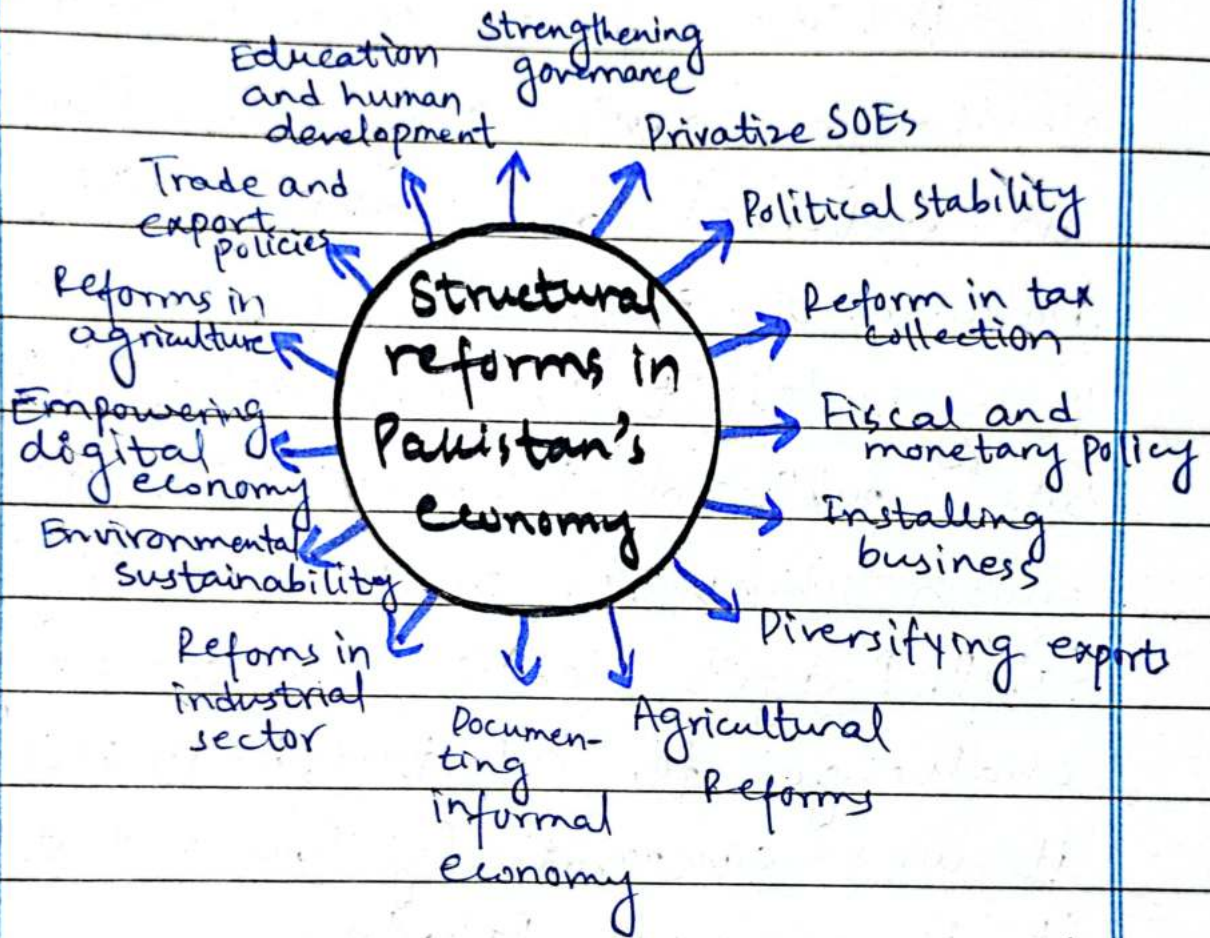 Strengthening
governance
Privatize SOEs
Political stability
Reform in tax
collection
Fiscal and
monetary policy
Installing
business
Diversifying exports
Agricultural
Reforms
Documen-
ting
informal
economy
Refoms in
industrial
sector
Environmental
sustainability
Empowering
digital
economy
Reforms in
agriculture
Trade and
export
policies
Education
and human
development
Structural
reforms in
Pakistan's
economy